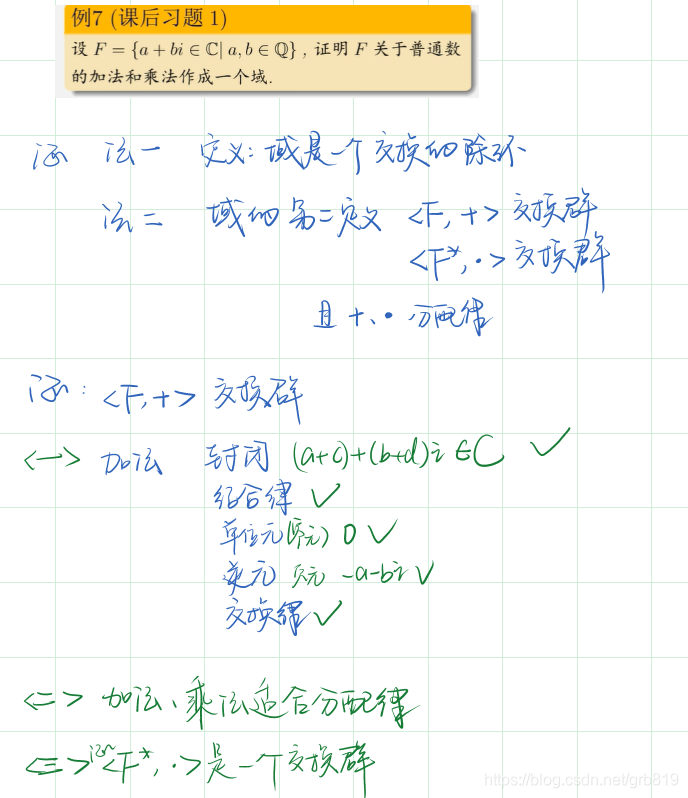 例7 (课后习题 1)
设 F = {a + bi ∈ ℂ| a, b ∈ ℚ} , 证明 F 关于普通数
的加法和乘法作成一个域.
证 法一 定义: 域是一个交换的除环
法二 域的另二定义 <F, +> 交换群
<F*, ·> 交换群
且 +、· 分配律
证: <F, +> 交换群
<一> 加法 封闭 (a+c)+(b+d)i ∈ C ✓
结合律 ✓
单位元(零元) 0 ✓
逆元) 负元 -a-bi ✓
交换律 ✓
<二> 加法、乘法适合分配律
<三> 证<F*, ·> 是一个交换群
https://blog.csdn.net/grb819